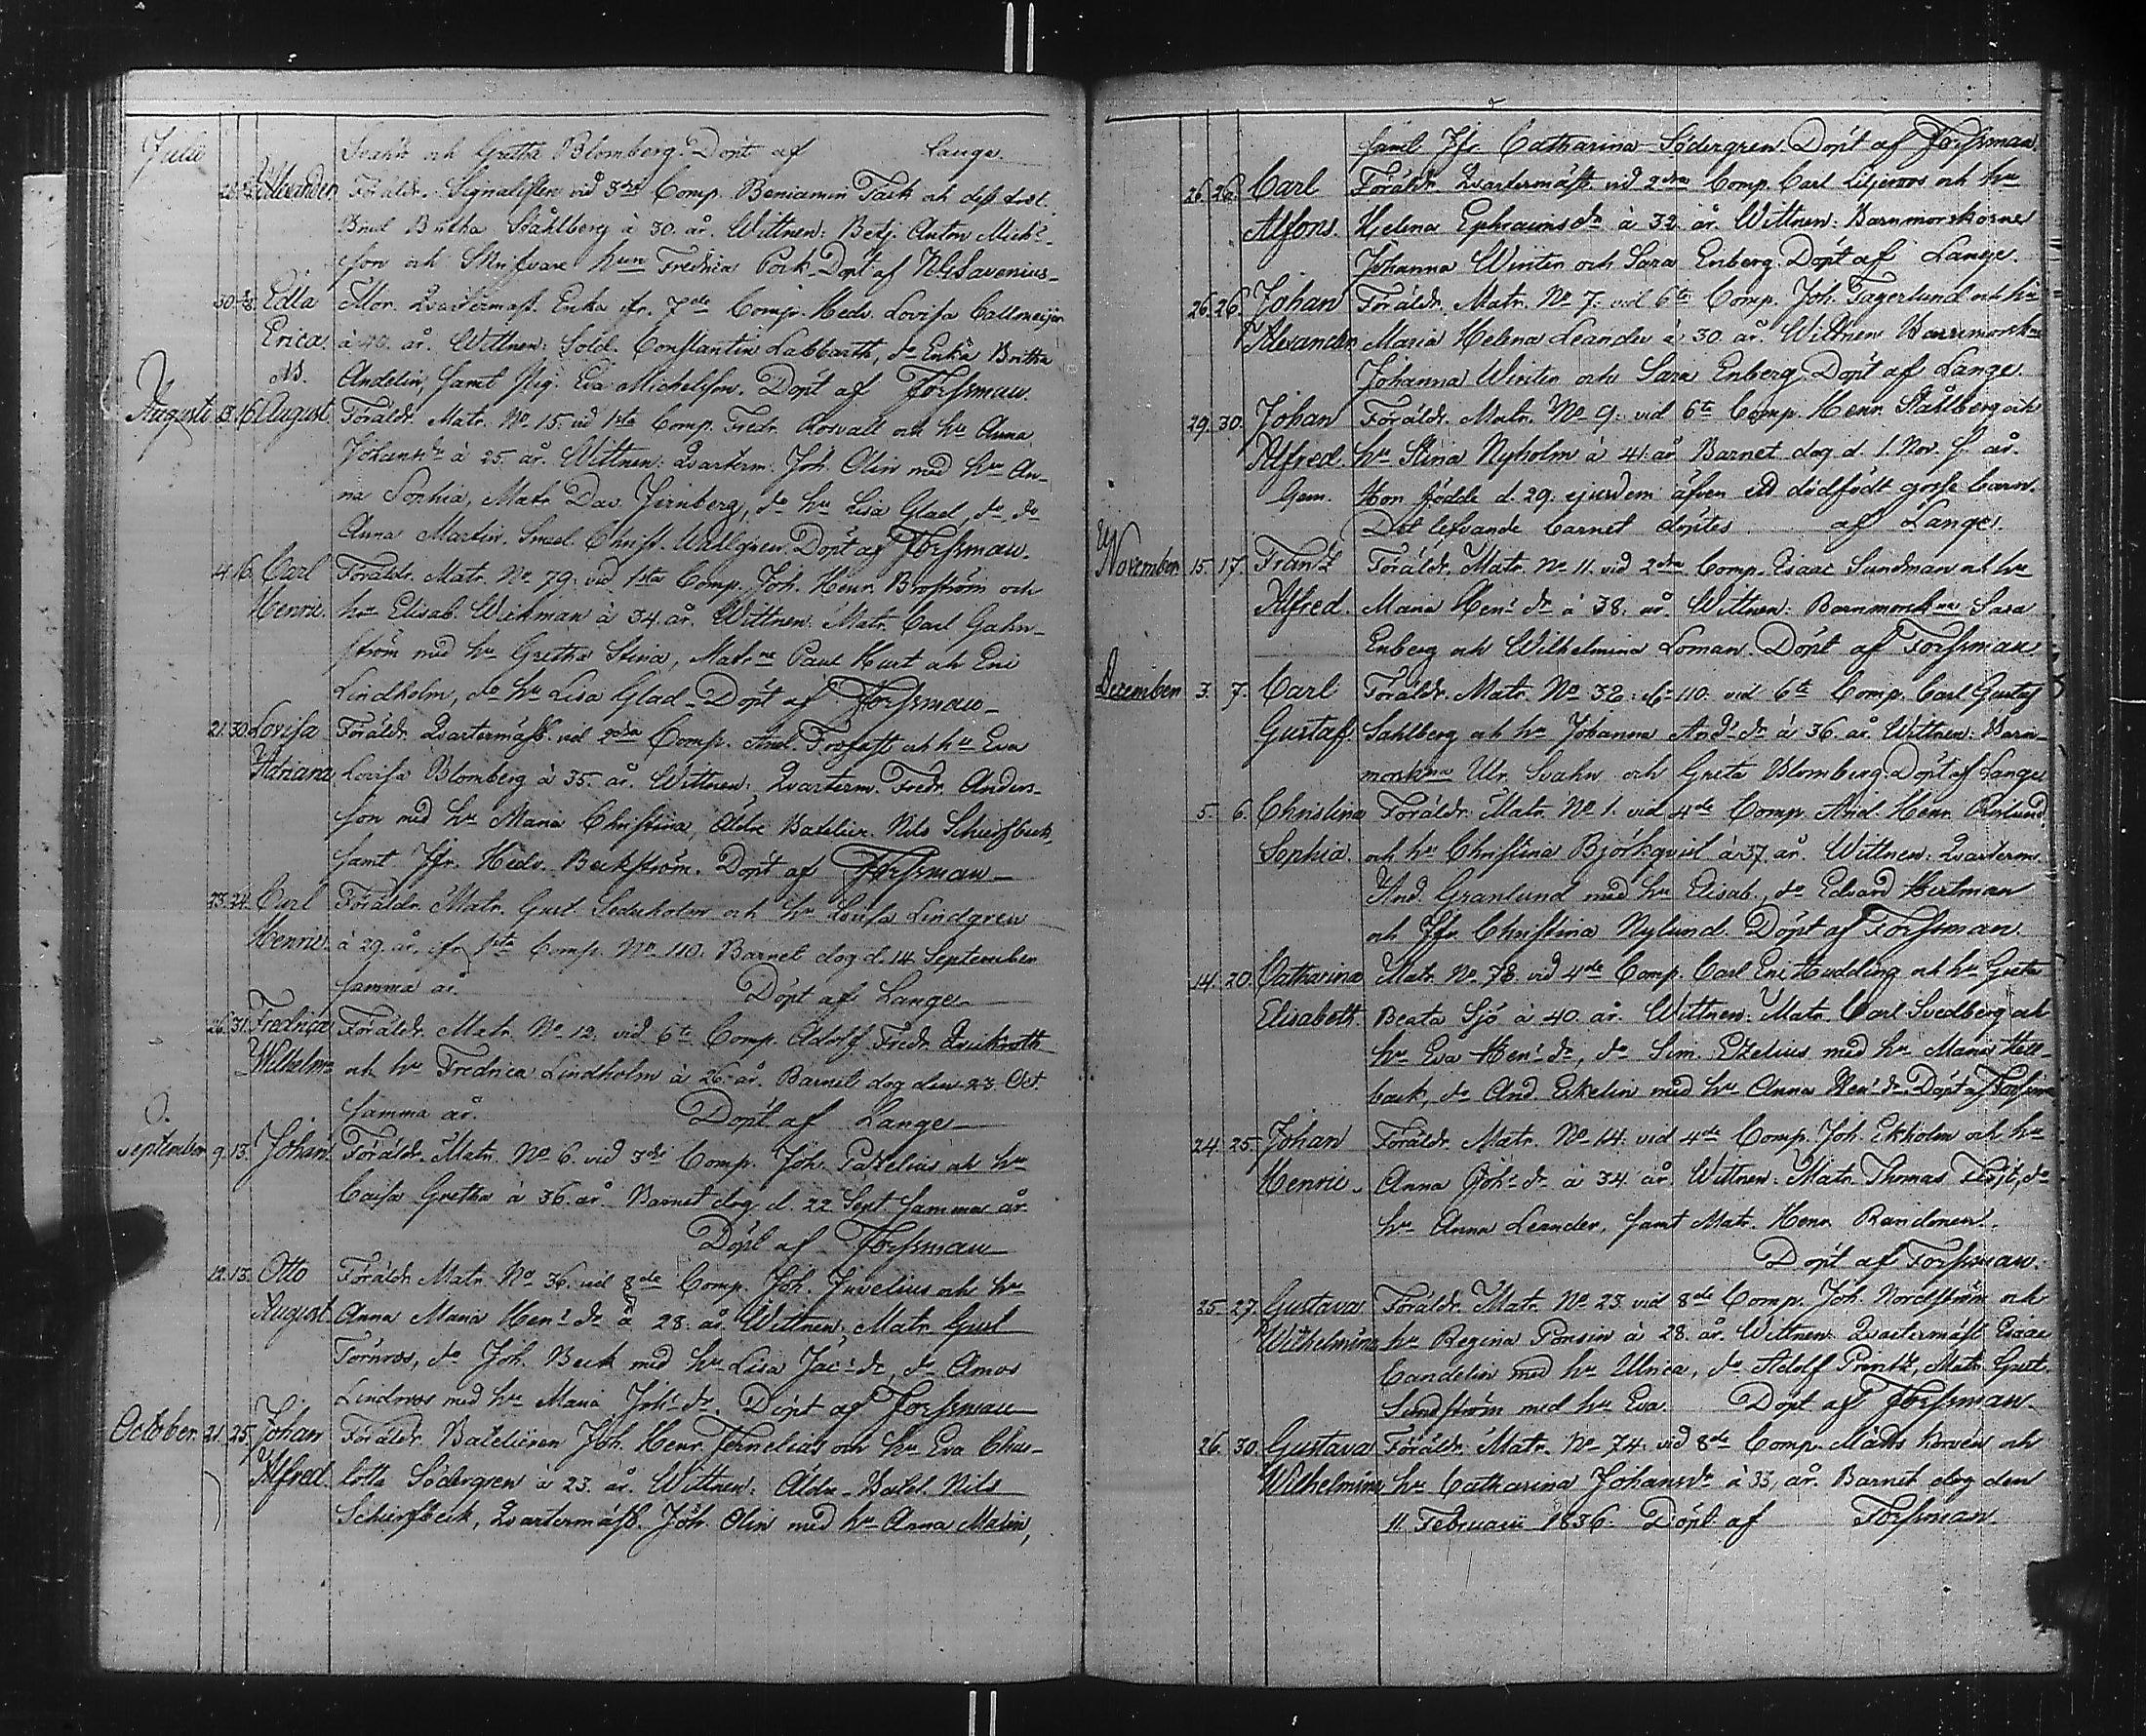 Julii
Svahn och Gretha Blomberg. Döpt af Lange.
28. Alexander. Föräldr. Signalisten vid 3dje Comp. Beniamin Tack och dess
Brud Britha Ståhlberg à 30. år. Wittnen: Betj. Anton Mich-
son och Skrifvare hun Fredrica Pork. Döpt af Savenius
30. Edla Mor. Qvartermäst. Enka ifr. 7de Comp. Hedv. Lovisa Callmeijer
Erica. à 40. år. Wittnen: Sold. Constantin Labbarth, do Enka Britha
Andelin, samt Pig. Eva Michelsson. Döpt af Forssman.
Augusti 13. 16. August. Föräldr. Matr. No 15. vid 1sta Comp. Fredr. Rosvall och hu Anna
Johansdr à 25. år. Wittnen: Qvarterm. Joh. Olin med hu An-
na Sophia, Matr. Dav. Jernberg, do hu Lisa Glad, do do
Anna Martin. Smed. Christ. Wallgren. Döpt af Forssman.
14. 16. Carl Föräldr. Matr. No 79. vid 1sta Comp. Joh. Henr. Broström och
Henric. hu Elisab. Wickman à 34. år. Wittnen: Matr. Carl Gahn-
ström med hu Gretha Stina, Matrne Paul Kurt och Eric
Lindholm, do hu Lisa Glad. Döpt af Forssman
21. 30. Lovisa Föräldr. Qvartermäst. vid 2dra Comp. And. Forsast och hu Eva
Adriana Lovisa Blomberg à 35. år. Wittnen: Qvarterm. Fredr. Anders-
son med hu Maria Christina, Äldre Batelier. Nils Schierfbeck,
samt Jfr. Hedv. Beckström. Döpt af Forssman
23. 24. Carl Föräldr. Matr. Gust. Sederholm och hu Lovisa Lindgren
Henric. à 29. år, ifr. 1sta Comp. No 110. Barnet dog d. 14 September
samma år. Döpt af Lange
26. 31. Fredrica Föräldr. Matr. No 12. vid 6te Comp. Adolf Fredr. Qvickroth
Wilhelma och hu Fredrica Lindholm à 26. år. Barnet dog den 23. Oct.
samma år. Döpt af Lange
September 9. 13. Johan Föräldr. Matr. No 6. vid 3dje Comp. Joh. Patzelius och hu
Caisa Gretha à 36. år. Barnet dog d. 22 Sept. samma år
Döpt af Forssman
12. 13. Otto Föräldr. Matr. No 36. vid 8de Comp. Joh. Juvelius och hu
August. Anna Maria Henr. dr à 28. år. Wittnen: Matr. Gust
Törnros, do Joh. Beck med hu Lisa Jac. dr, do Amos
Lindroos med hu Maria Joh. dr. Döpt af Forssman
October. 21. 25. Johan Föräldr. Batelieren Joh. Henr. Fernelius och hu Eva Char-
Alfred. lotta Södergren à 23. år. Wittnen: Äldre Batel. Nils
Schierfbeck, Qvartermäst. Joh. Olin med hu Anna Malin,
saml Jfr. Catharina Södergren. Döpt af Forssman
26. 26. Carl Föräldr. Qvartermäst. vid 2dra Comp. Carl Liljeroos och hu
Alfons. Helena Ephraimsdr à 32. år. Wittnen: Barnmorskorne
Johanna Winter och Sara Enberg. Döpt af Lange.
26. 26. Johan Föräldr. Matr. No 7. vid 6te Comp. Joh. Fagerlund och hu
Alexander. Maria Helena Leander à 30. år. Wittnen Barnmorskne
Johanna Winter och Sara Enberg Döpt af Lange
29. 30. Johan Föräldr. Matr. No 9. vid 6te Comp. Henr. Ståhlberg och
Alfred. hu Stina Nyholm à 41. år Barnet dog d. 1. Nov. s. år.
Gem. Hon födde d. 29. ejusdem äfven ett dödfödt gosse barn.
Det lefvande barnet döptes af Lange.
November. 15. 17. Frantz Föräldr. Matr. No 11. vid 2dra Comp. Esaac Sundman och hu
Alfred. Maria Henr. dr à 38. år. Wittnen: Barnmorskne Sara
Enberg och Wilhelmina Loman. Döpt af Forssman
December 3. 7. Carl Föräldr. Matr. No 32. & 110. vid 6te Comp. Carl Gustaf
Gustaf. Sahlberg och hu Johanna And. dr à 36. år. Wittnen: Barn-
morskna Ulr. Svahn och Greta Blomberg. Döpt af Lange
5. 6. Christina Föräldr. Matr. No 1. vid 4de Comp. And. Henr.
Sophia. och hu Christina Björkqvist à 37. år. Wittnen: Qvarterm.
And. Granlund med hu Elisab., do Edvard Hertman
och Jfr. Christina Nylund. Döpt af Forssman.
14. 20. Catharina Matr. No 78. vid 4de Comp. Carl Eric Hudding och hu Greta
Elisabeth. Beata Sjö à 40. år. Wittnen: Matr. Carl Svedberg och
hu Eva Henr. dr, do Sim. Ezelius med hu Maria Hell-
back, do And. Eskelin med hu Anna Henr. dr. Döpt af Forssman
24. 25. Johan Föräldr. Matr. No 14. vid 4de Comp. Joh. Ekholm och hu
Henric. Anna Joh. dr à 34. år. Wittnen: Matr. Thomas Flöjt, do
hu Anna Leander, samt Matr. Henr. Randonen.
Döpt af Forssman.
25. 27. Gustava Föräldr. Matr. No 23. vid 8de Comp. Joh. Nordström och
Wilhelmina hu Regina Ponsin à 28. år. Wittnen: Qvartermäst. Esaac
Candelin med hu Ulrica, do Adolf Printz, Matr. Gust.
Sundström med hu Eva. Döpt af Forssman.
26. 30. Gustava Föräldr. Matr. No 74. vid 8de Comp. Matts Norvén och
Wilhelmina hu Catharina Johansdr à 33. år. Barnet dog den
11. Februarii 1836. Döpt af Forssman.